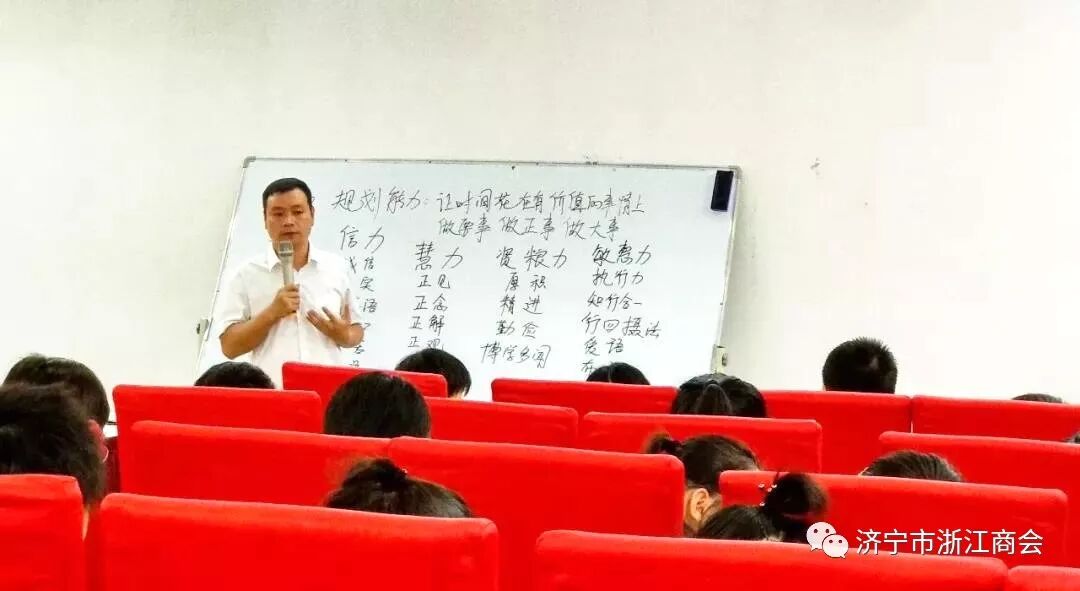 规划能力：让时间花在有价值的事情上
做善事 做正事 做大事
信力 慧力 资粮力 敏慧力
诚信 正见 厚积 执行力
实 正念 精进 知行合一
语 正解 勤俭 行四摄法
正观 博学多闻 爱语
济宁市浙江商会